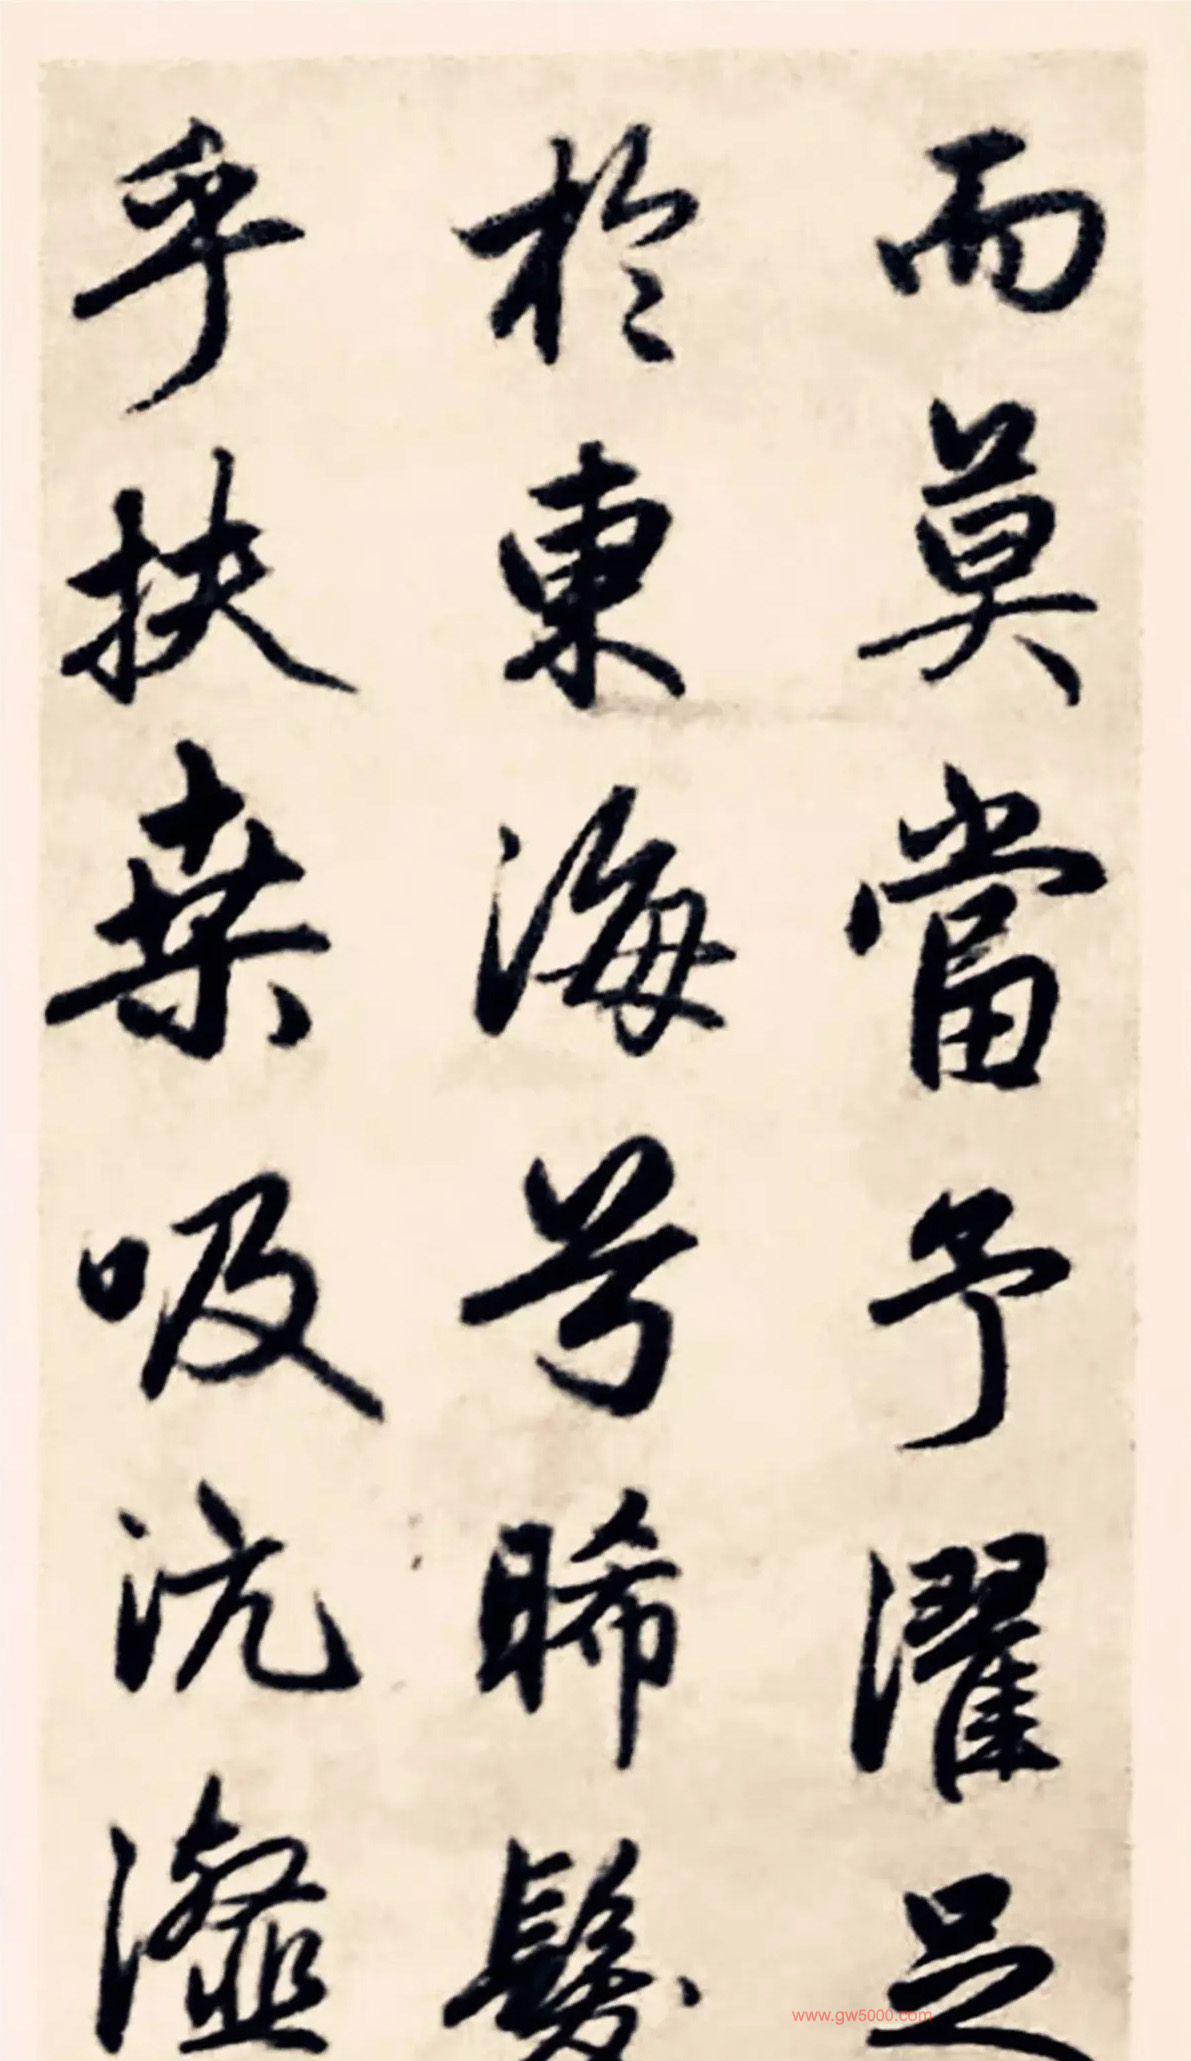 而莫當予濯足
於東海兮晞髮
乎扶桒吸沆瀣
www.gw5000.com